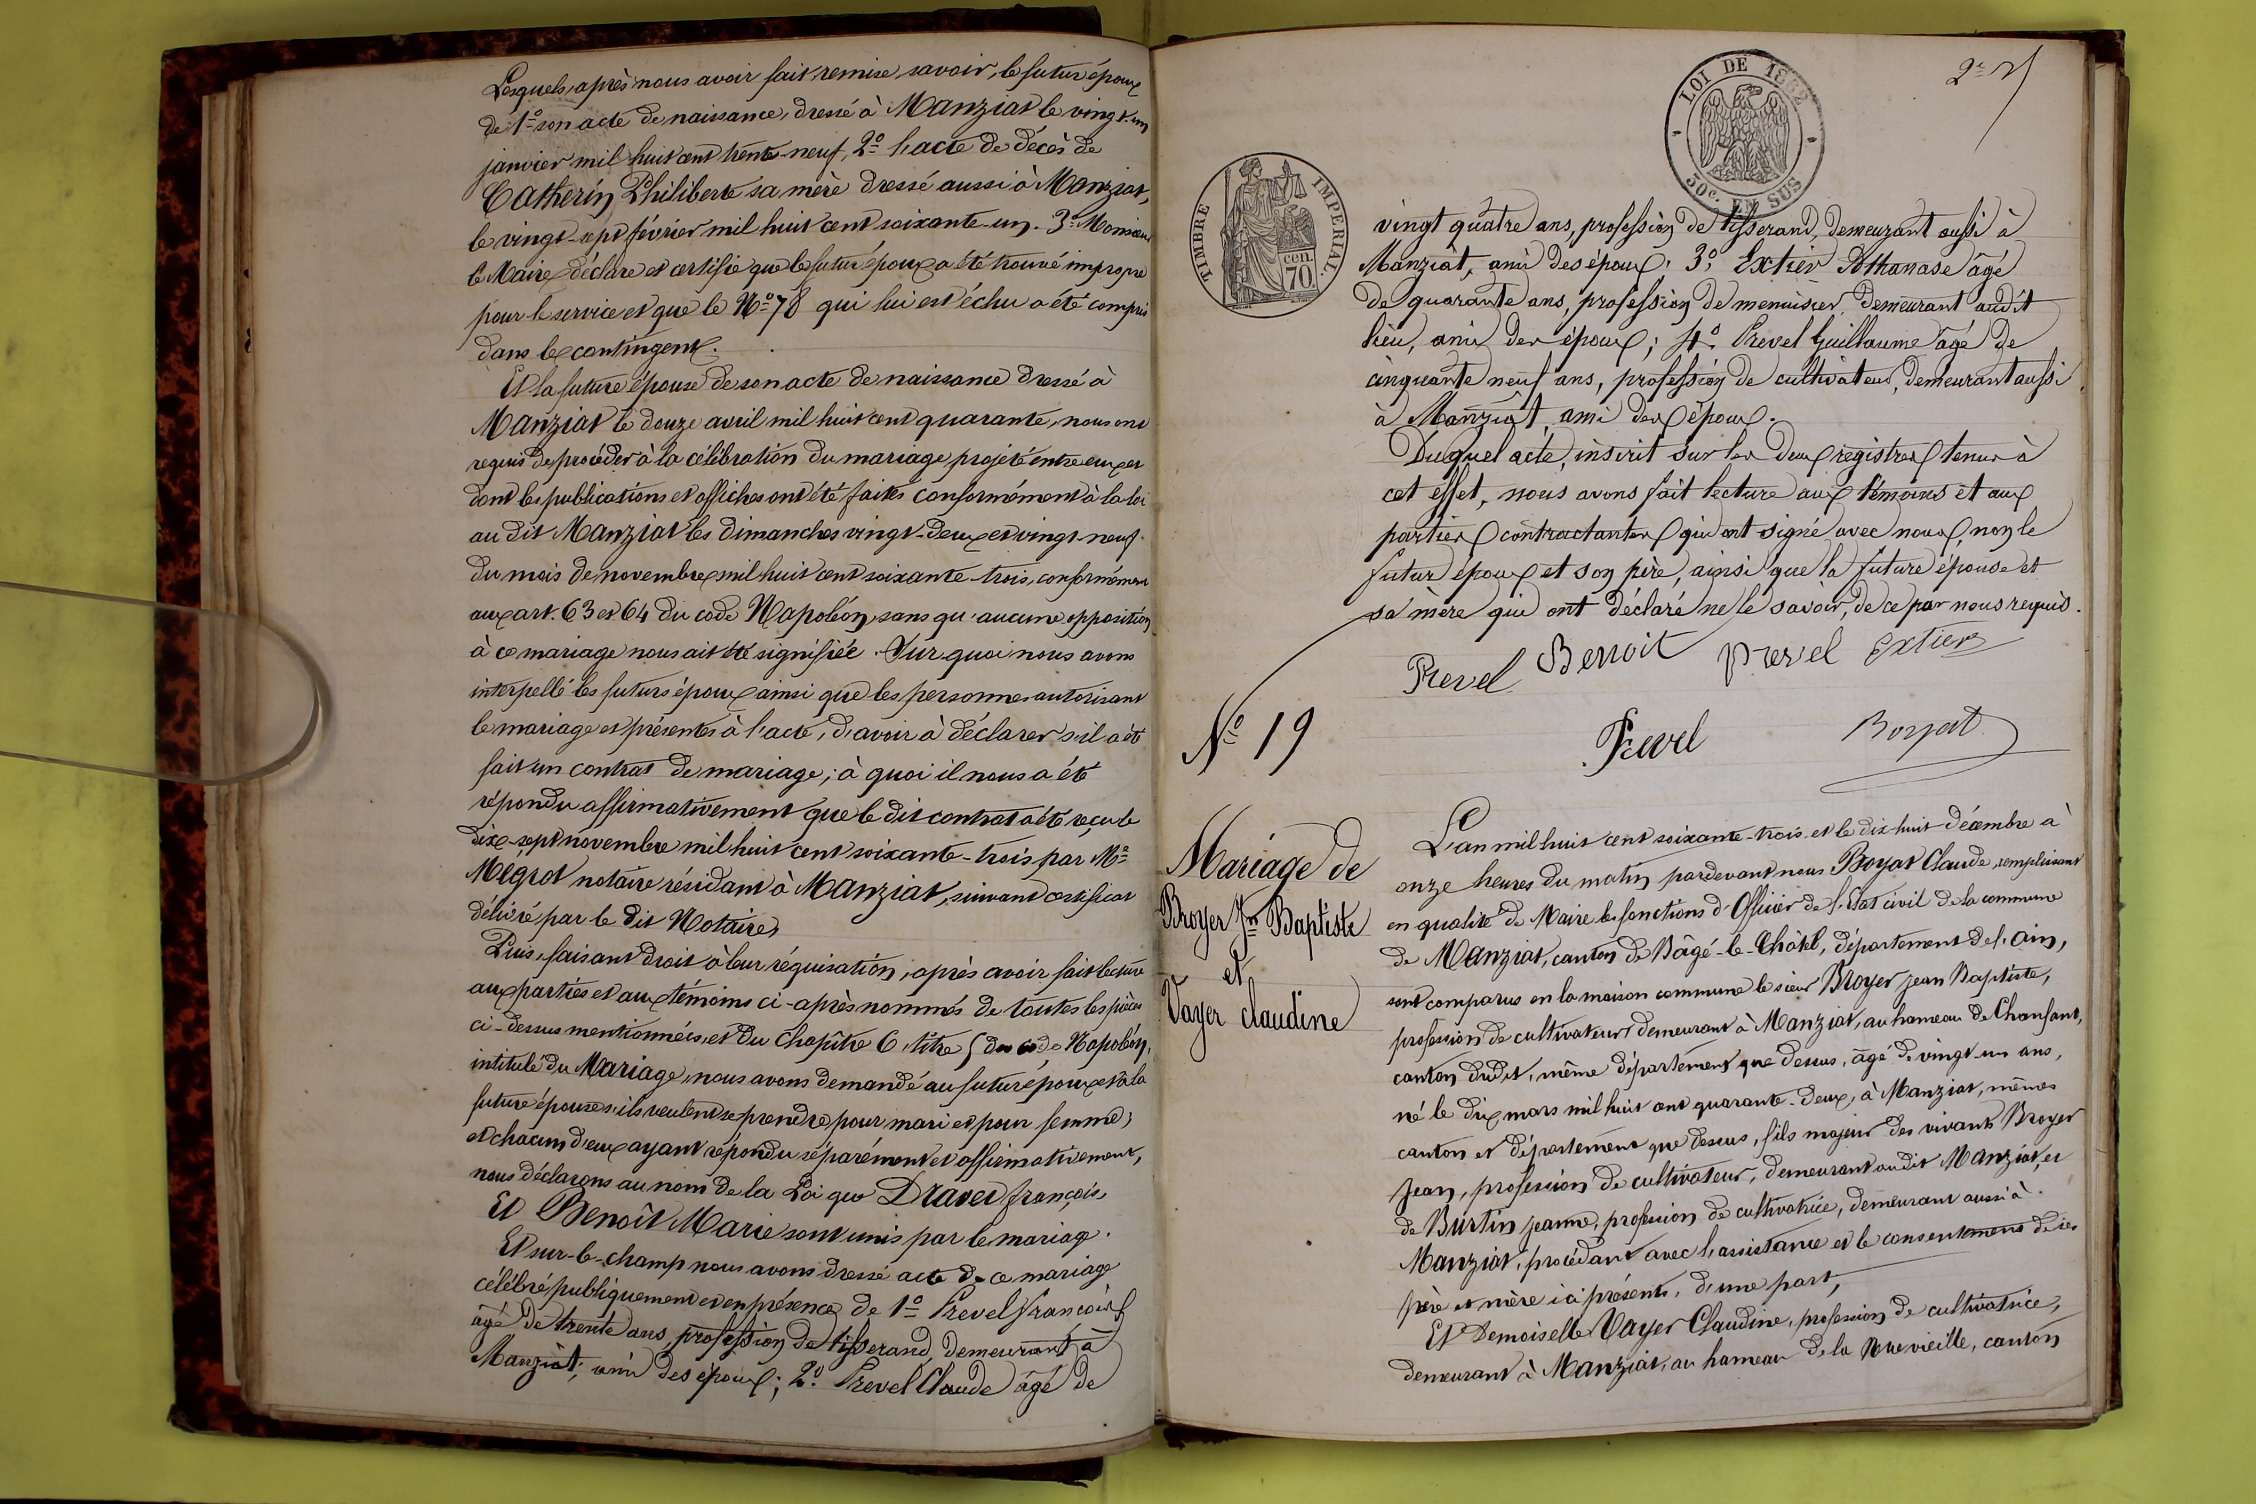 Lesquels, après nous avoir fait remise savoir, le futur époux
de 1º son acte de naissance, dressé à Manziat le vingt-un
janvier mil huit cent trente-neuf, 2º l'acte de décès de
Catherin Philiberte sa mère dressé aussi à Manziat,
le vingt-sept février mil huit cent soixante-un. 3º Monsieur
le Maire déclare et certifie que le futur époux a été trouvé impropre
pour le service et que le Nº 78 qui lui est échu a été compris
dans le contingent.
Et la future épouse de son acte de naissance dressé à
Manziat le douze avril mil huit cent quarante, nous ont
requis de procéder à la célébration du mariage projeté entre eux et
dont les publications et affiches ont été faites conformément à la loi
au dit Manziat les dimanches vingt-deux et vingt-neuf
du mois de novembre mil huit cent soixante-trois, conformément
aux art. 63 et 64 du code Napoléon, sans qu'aucune opposition
à ce mariage nous ait été signifiée. Sur quoi nous avons
interpellé les futurs époux ainsi que les personnes autorisant
le mariage et présentes à l'acte, d'avoir à déclarer s'il a été
fait un contrat de mariage; à quoi il nous a été
répondu affirmativement que le dit contrat a été reçu le
dix-sept novembre mil huit cent soixante-trois par Me
Megrot notaire résidant à Manziat, suivant certificat
délivré par le dit Notaire,
Puis, faisant droit à leur réquisition, après avoir fait lecture
aux parties et aux témoins ci-après nommés de toutes les pièces
ci-dessus mentionnées, et du Chapitre 6, titre 5 du code Napoléon,
intitulé du Mariage, nous avons demandé au futur époux et à la
future épouse s'ils veulent se prendre pour mari et pour femme;
et chacun d'eux ayant répondu séparément et affirmativement,
nous déclarons au nom de la Loi que Dravet françois,
Et Benoît Marie sont unis par le mariage.
Et sur-le-champ nous avons dressé acte de ce mariage
célébré publiquement et en présence de 1º Prevel François
âgé de trente ans, profession de tisserand, demeurant à
Manziat, ami des époux; 2º Prevel Claude âgé de
LOI DE 1862
50c. EN SUS
TIMBRE IMPERIAL
70 cen.
vingt quatre ans, profession de tisserand, demeurant aussi à
Manziat, ami des époux; 3º Extier Athanase âgé
de quarante ans, profession de menuisier, demeurant audit
lieu, ami des époux; 4º Prevel Guillaume âgé de
cinquante neuf ans, profession de cultivateur, demeurant aussi
à Manziat, ami des époux.
Duquel acte, inscrit sur les deux registres tenus à
cet effet, nous avons fait lecture aux témoins et aux
parties contractantes qui ont signé avec nous, non le
futur époux et son père, ainsi que la future épouse et
sa mère qui ont déclaré ne le savoir, de ce par nous requis.
Prevel Benoit Prevel Extier
Prevel Boyat
Nº 19
Mariage de
Broyer Jn Baptiste
et
Vayer claudine
L'an mil huit cent soixante-trois et le dix-huit décembre à
onze heures du matin pardevant nous Boyat Claude, remplissant
en qualité de Maire les fonctions d'Officier de l'Etat civil de la commune
de Manziat, canton de Bâgé-le-Châtel, département de l'Ain,
sont comparus en la maison commune le sieur Broyer jean Baptiste,
profession de cultivateur, demeurant à Manziat, au hameau de Chanfant,
canton dudit, même département que dessus, âgé de vingt-un ans,
né le dix mars mil huit cent quarante-deux, à Manziat, mêmes
canton et département que dessus, fils majeur des vivants Broyer
Jean, profession de cultivateur, demeurant au dit Manziat, et
de Burtin jeanne, profession de cultivatrice, demeurant aussi à
Manziat, procédant avec l'assistance et le consentement de ses
père et mère ici présents, d'une part,
Et Demoiselle Vayer Claudine, profession de cultivatrice,
demeurant à Manziat, au hameau de la Ruevieille, canton